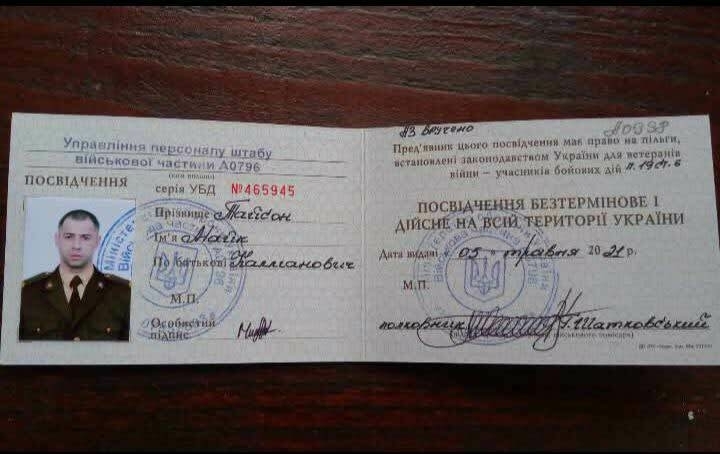 Управління персоналу штабу
військової частини А0796
ПОСВІДЧЕННЯ
серія УБД №465945
Прізвище Тайсон
Ім'я Майк
По батькові
М.П.
Особистий
підпис
АЗ Вручено
Пред'явник цього посвідчення має право на пільги,
встановлені законодавством України для ветеранів
війни – учасників бойових дій
ПОСВІДЧЕННЯ БЕЗТЕРМІНОВЕ І
ДІЙСНЕ НА ВСІЙ ТЕРИТОРІЇ УКРАЇНИ
Дата видачі 05 травня 2021 р.
М.П.
полковник Г.Шатковський